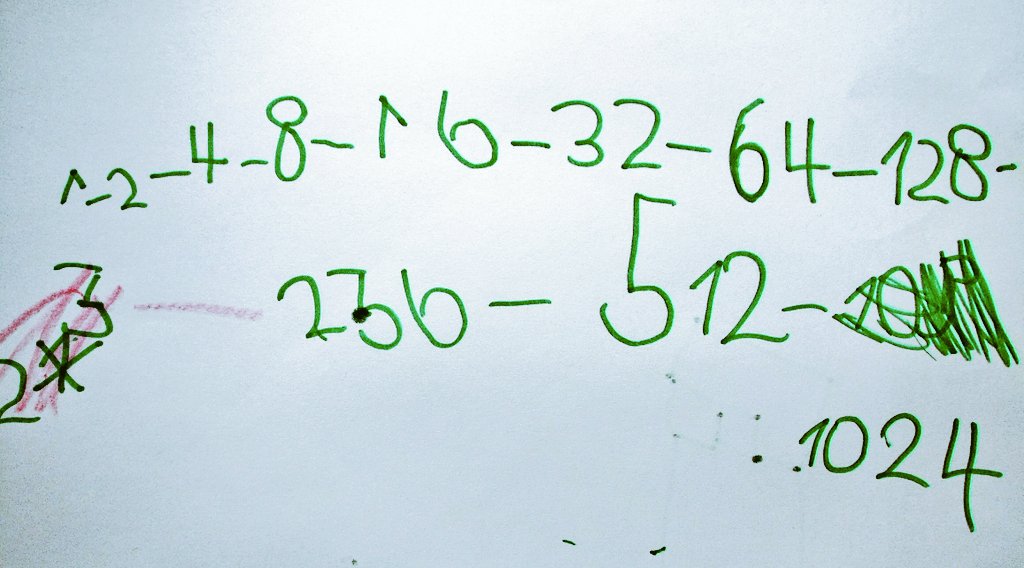 1-2-4-8-16-32-64-128-
256-512-
1024